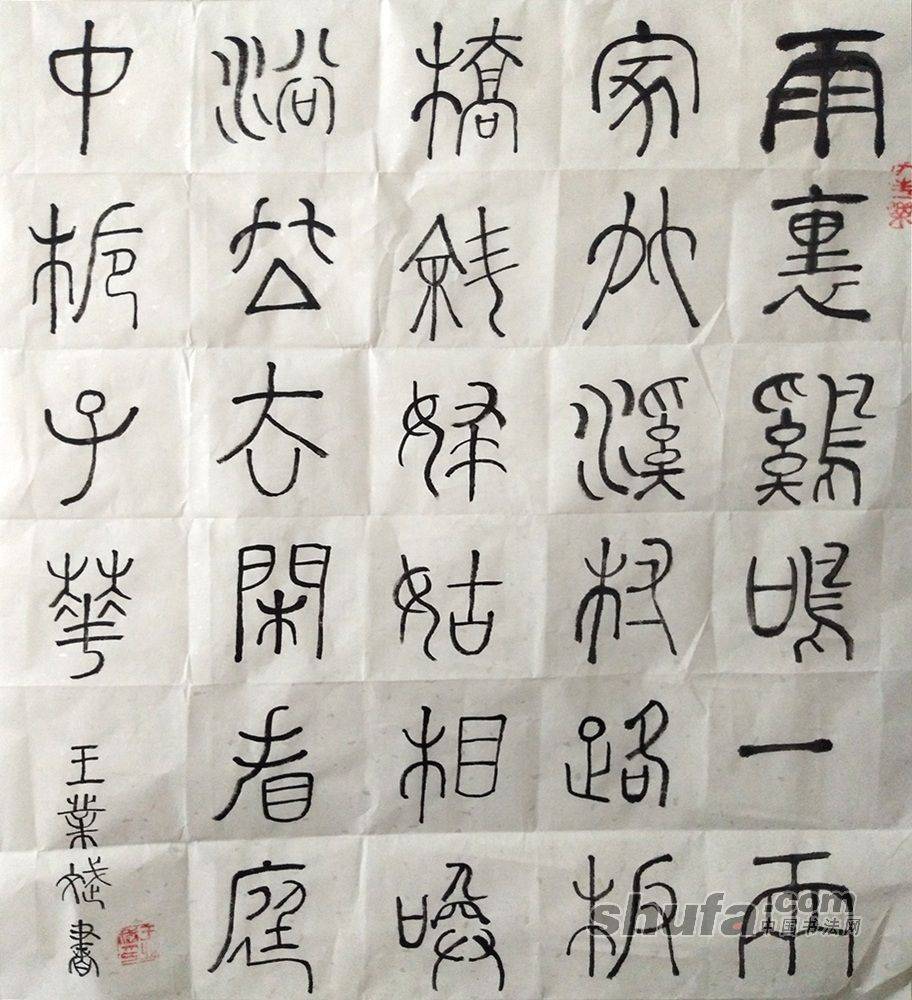 雨裏鷄鳴一兩
家竹溪村路板
橋斜婦姑相喚
浴蠶去閑看庭
中栀子華
王業斌書
shufa.com
中国书法网